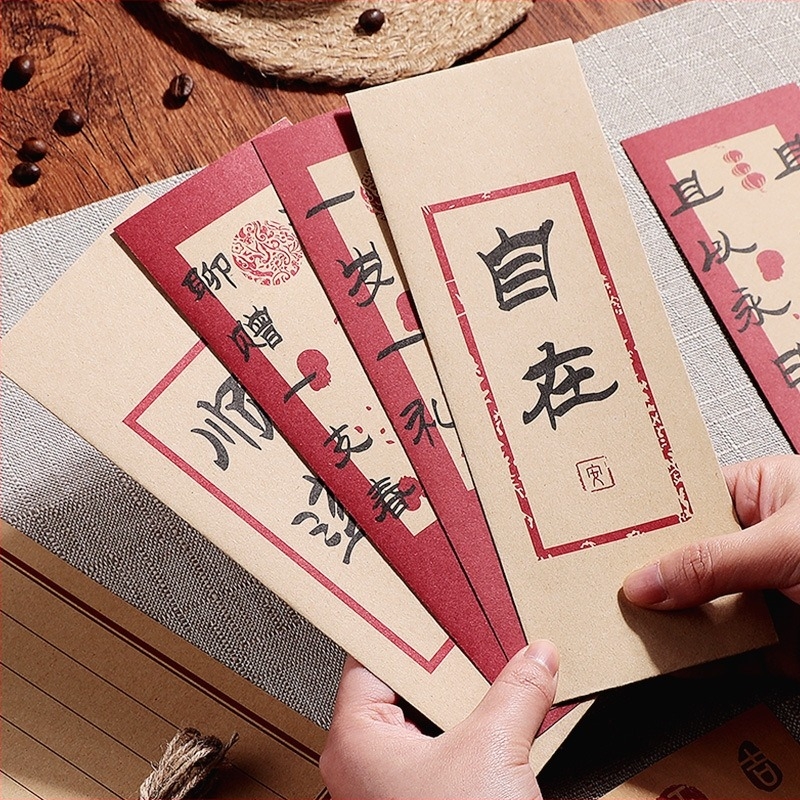 顺
聊赠一支春
一岁一礼
自在
安
且以永日
且